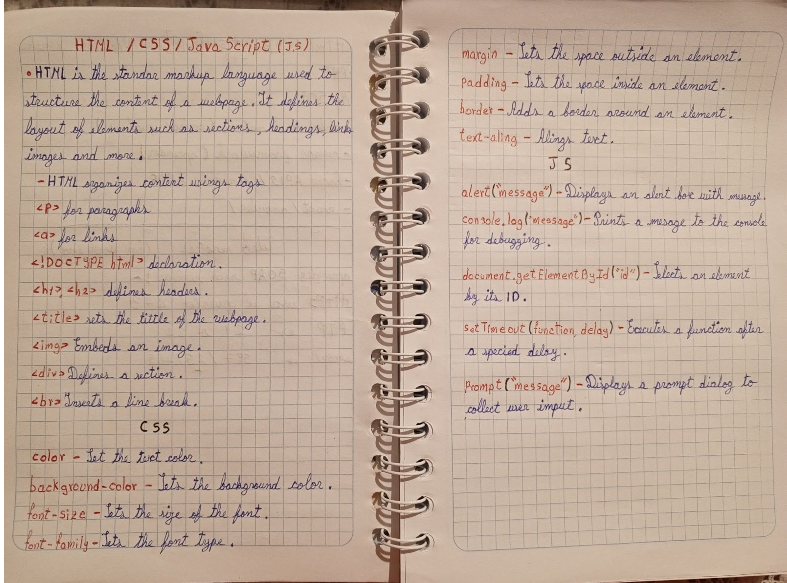 HTML / CSS / Java Script (JS)
• HTML is the standar markup language used to
structure the content of a webpage. It defines the
layout of elements such as sections, headings, links
images and more.
- HTML organizes content usings tags
<P> for paragraphs
<a> for links
<!DOCTYPE html> declaration.
<h1>, <h2> defines headers.
<title> sets the tittle of the webpage.
<img> Embeds an image.
<div> Defines a section.
<br> Inserts a line break.
CSS
color - Set the text color.
background-color - Sets the background color.
font-size - Sets the size of the font.
font-family - Sets the font type.
margin - Sets the space outside an element.
padding - Sets the space inside an element.
border - Adds a border around an element.
text-aling - Alings text.
JS
alert("message") - Displays an alert box with message.
console.log("message") - Prints a mesage to the console
for debugging.
document.getElementById("id") - Selects an element
by its ID.
setTimeout(function, delay) - Executes a function after
a specied delay.
Prompt("message") - Displays a prompt dialog to
collect user imput.